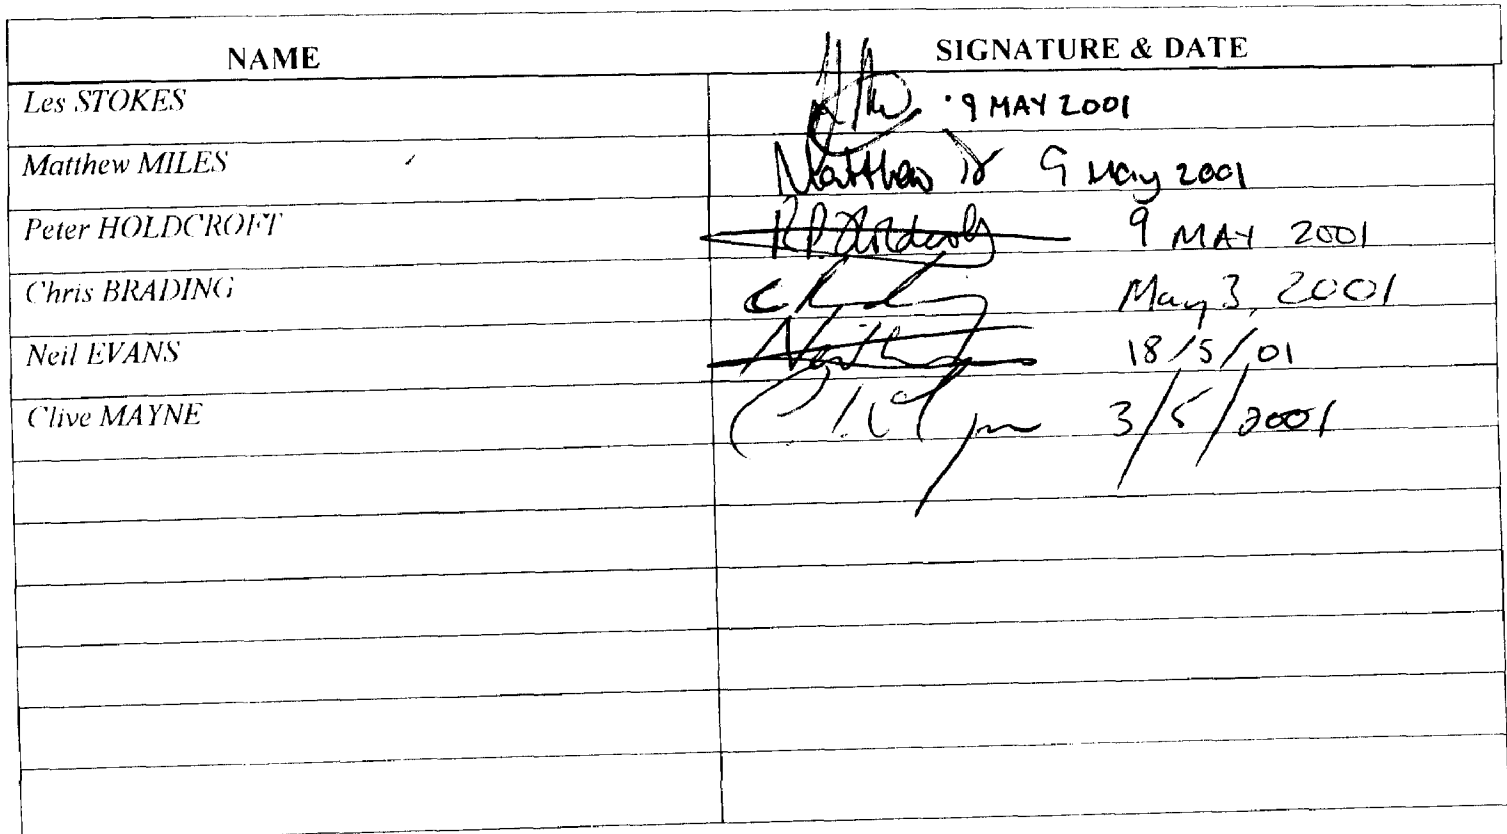 NAME SIGNATURE & DATE
Les STOKES 9 MAY 2001
Matthew MILES Matthew 9 May 2001
Peter HOLDCROFT 9 MAY 2001
Chris BRADING May 3, 2001
Neil EVANS 18/5/01
Clive MAYNE 3/5/2001